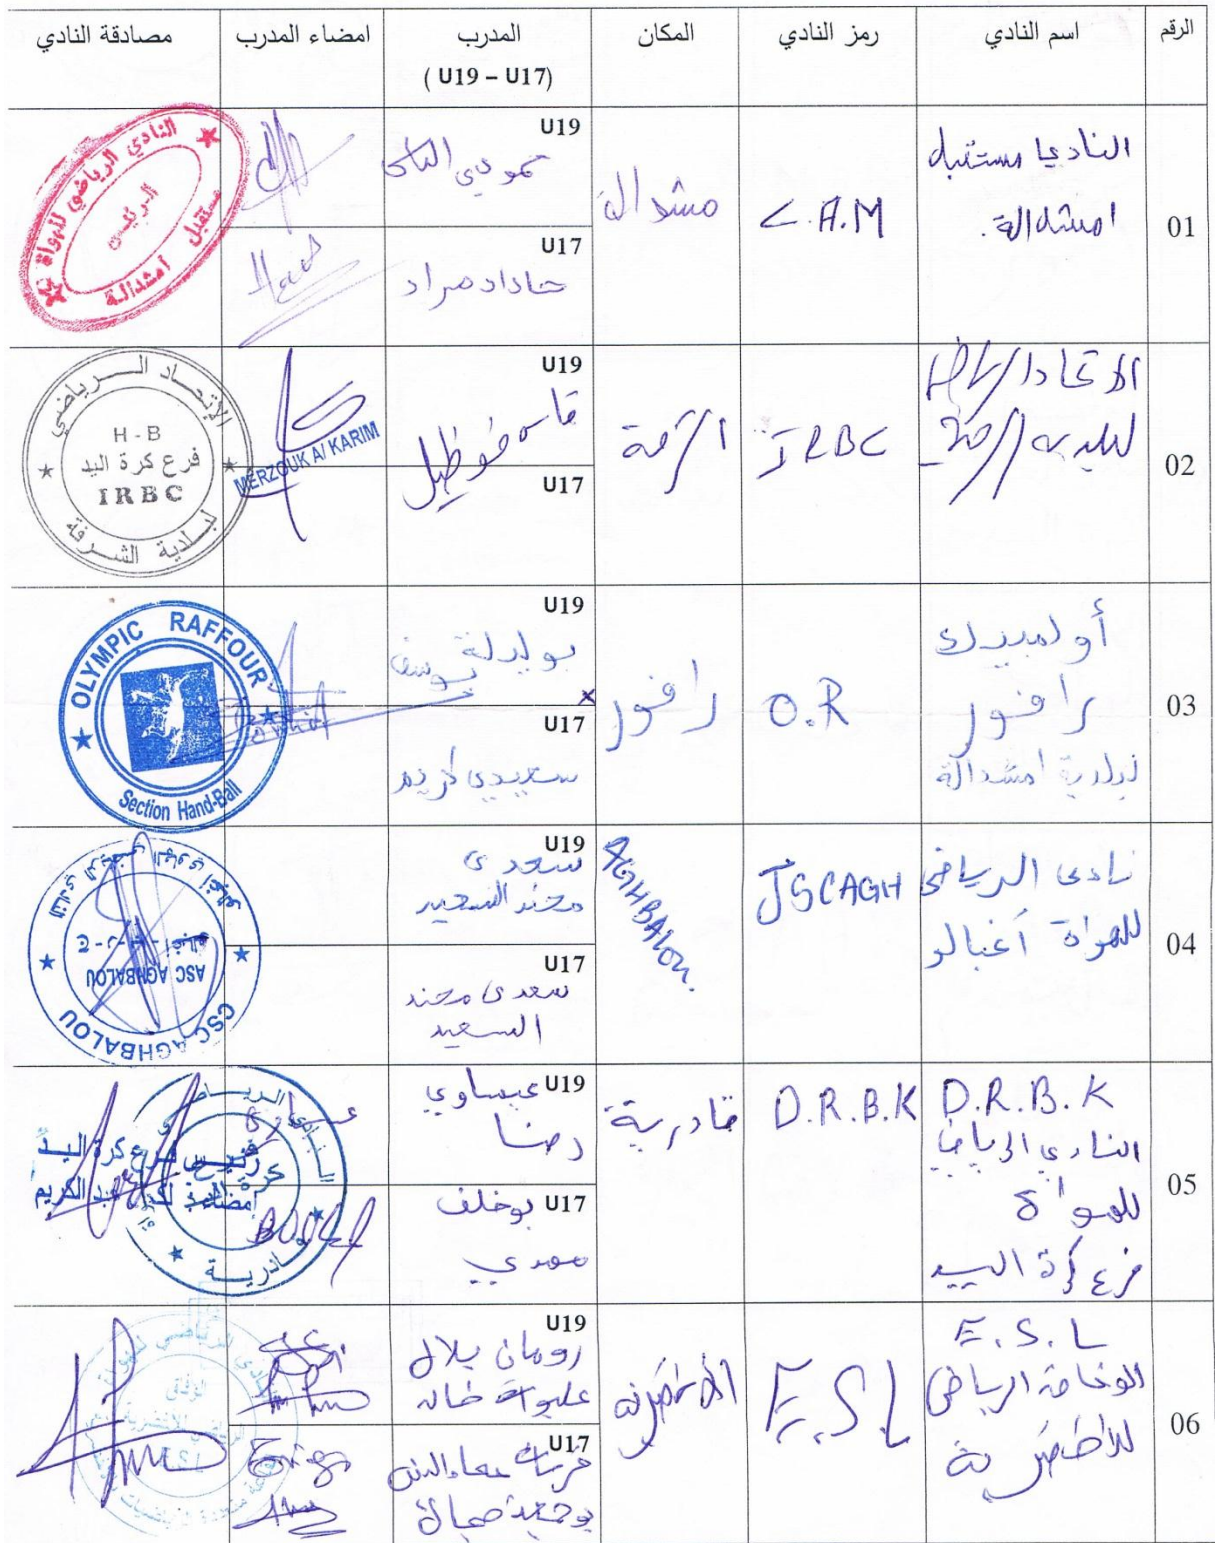 الرقم
اسم النادي
رمز النادي
المكان
المدرب
(U19 – U17 )
امضاء المدرب
مصادقة النادي
01
النادي مستقبل
امشدالة.
C.A.M
مشدالة
U19
U17
حداد مراد
النادي الرياضي للهواة
مستقبل امشدالة
الرئيس
02
الاتحاد الرياضي
لبلدية الشرفة
IRBC
الشرفة
U19
U17
MERZOUK A/ KARIM
الإتحاد الرياضي
H - B
فرع كرة اليد
IRBC
لبلدية الشرفة
03
أولمبيك
رافور
لبلدية امشدالة
O.R
رافور
U19
بوليلة
يوسف
x
U17
سعيدي كريم
OLYMPIC RAFFOUR
Section Hand-Ball
04
نادي الرياضي
للهواة أغبالو
JSCAGH
AGHBALOU.
U19
سعدي
محند السعيد
U17
سعدي محند
السعيد
ASC AGHBALOU
CSC AGHBALOU
05
D.R.B.K
النادي الرياضي
للهواة
فرع كرة اليد
D.R.B.K
قادرية
U19
عيساوي
رضا
U17
بوخلف
مهدي
رئيس فرع كرة اليد
قادرية
06
E.S.L
الوفاق الرياضي
للأخضرية
E.S.L
الأخضرية
U19
رومان بلال
عليوات خالد
U17